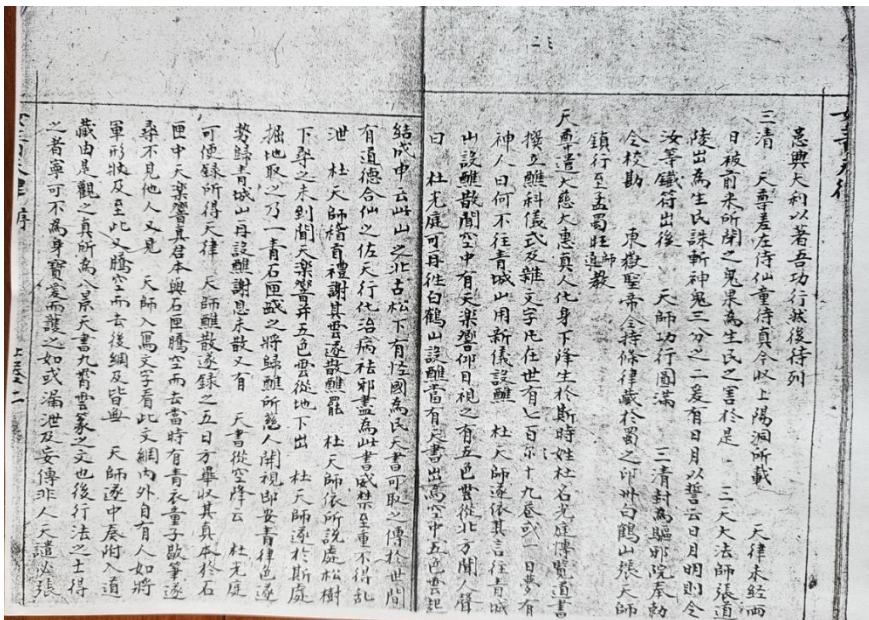 意興大利以著吾功行然後待列
三清 天尊差左侍仙童待真令以上陽洞所載 天律未經兩
日被前來所聞之鬼眾為生民之害於是 三天大法師張道
陵出為生民誅斬神鬼三分之二爰有日月以誓云日月明則令
汝等鐵符出後 天師功行圓滿 三清封為驅邪院奉勅
令校勘 東嶽聖帝令持條律藏於蜀之邛州白鶴山張天師
鎮行至孟蜀旺
天尊遣大慈大惠真人化身下降生於斯時姓杜名光庭博覽道書
撰立醮科儀式及雜文字凡在世有七百
十九卷或一日夢有
神人曰何不往青城山用新儀設醮 杜天師遂依其言往青城
山設醮散聞空中有天樂響仰目視之有五色雲從北方聞人聲
曰 杜光庭可再往白鶴山設醮當有天書出為空中五色雲起
結成申云此山之北古松下有怪國為民天書可取之傳於世間
有道德合仙之佐天行化治病祛邪盡為此書威禁至重不得亂
泄 杜天師稽首禮謝其雲遂散醮罷 杜天師依所說處松樹
下尋之未到聞天樂響并五色雲從地下出 杜天師遂於斯處
掘地取之乃一青石匣
之將歸醮所
人開視即安青律色遂
勢歸青城山再設醮謝恩未散又有 天書從空降云 杜光庭
可便錄所得天律 天師醮散遂錄之五日方畢收其真本於石
匣中天樂響真君本與石匣騰空而去當時有青衣童子歇筆遂
尋不見他人又見 天師入寫文字看此文綱內外自有人如將
軍形狀及至此又騰空而去後綱及皆無 天師遂中奏附入道
藏由是觀之真所為八景天書九霄雲篆之文也後行法之士得
之者寧可不為身寶愛而護之如或漏泄及妄傳非人天譴必張